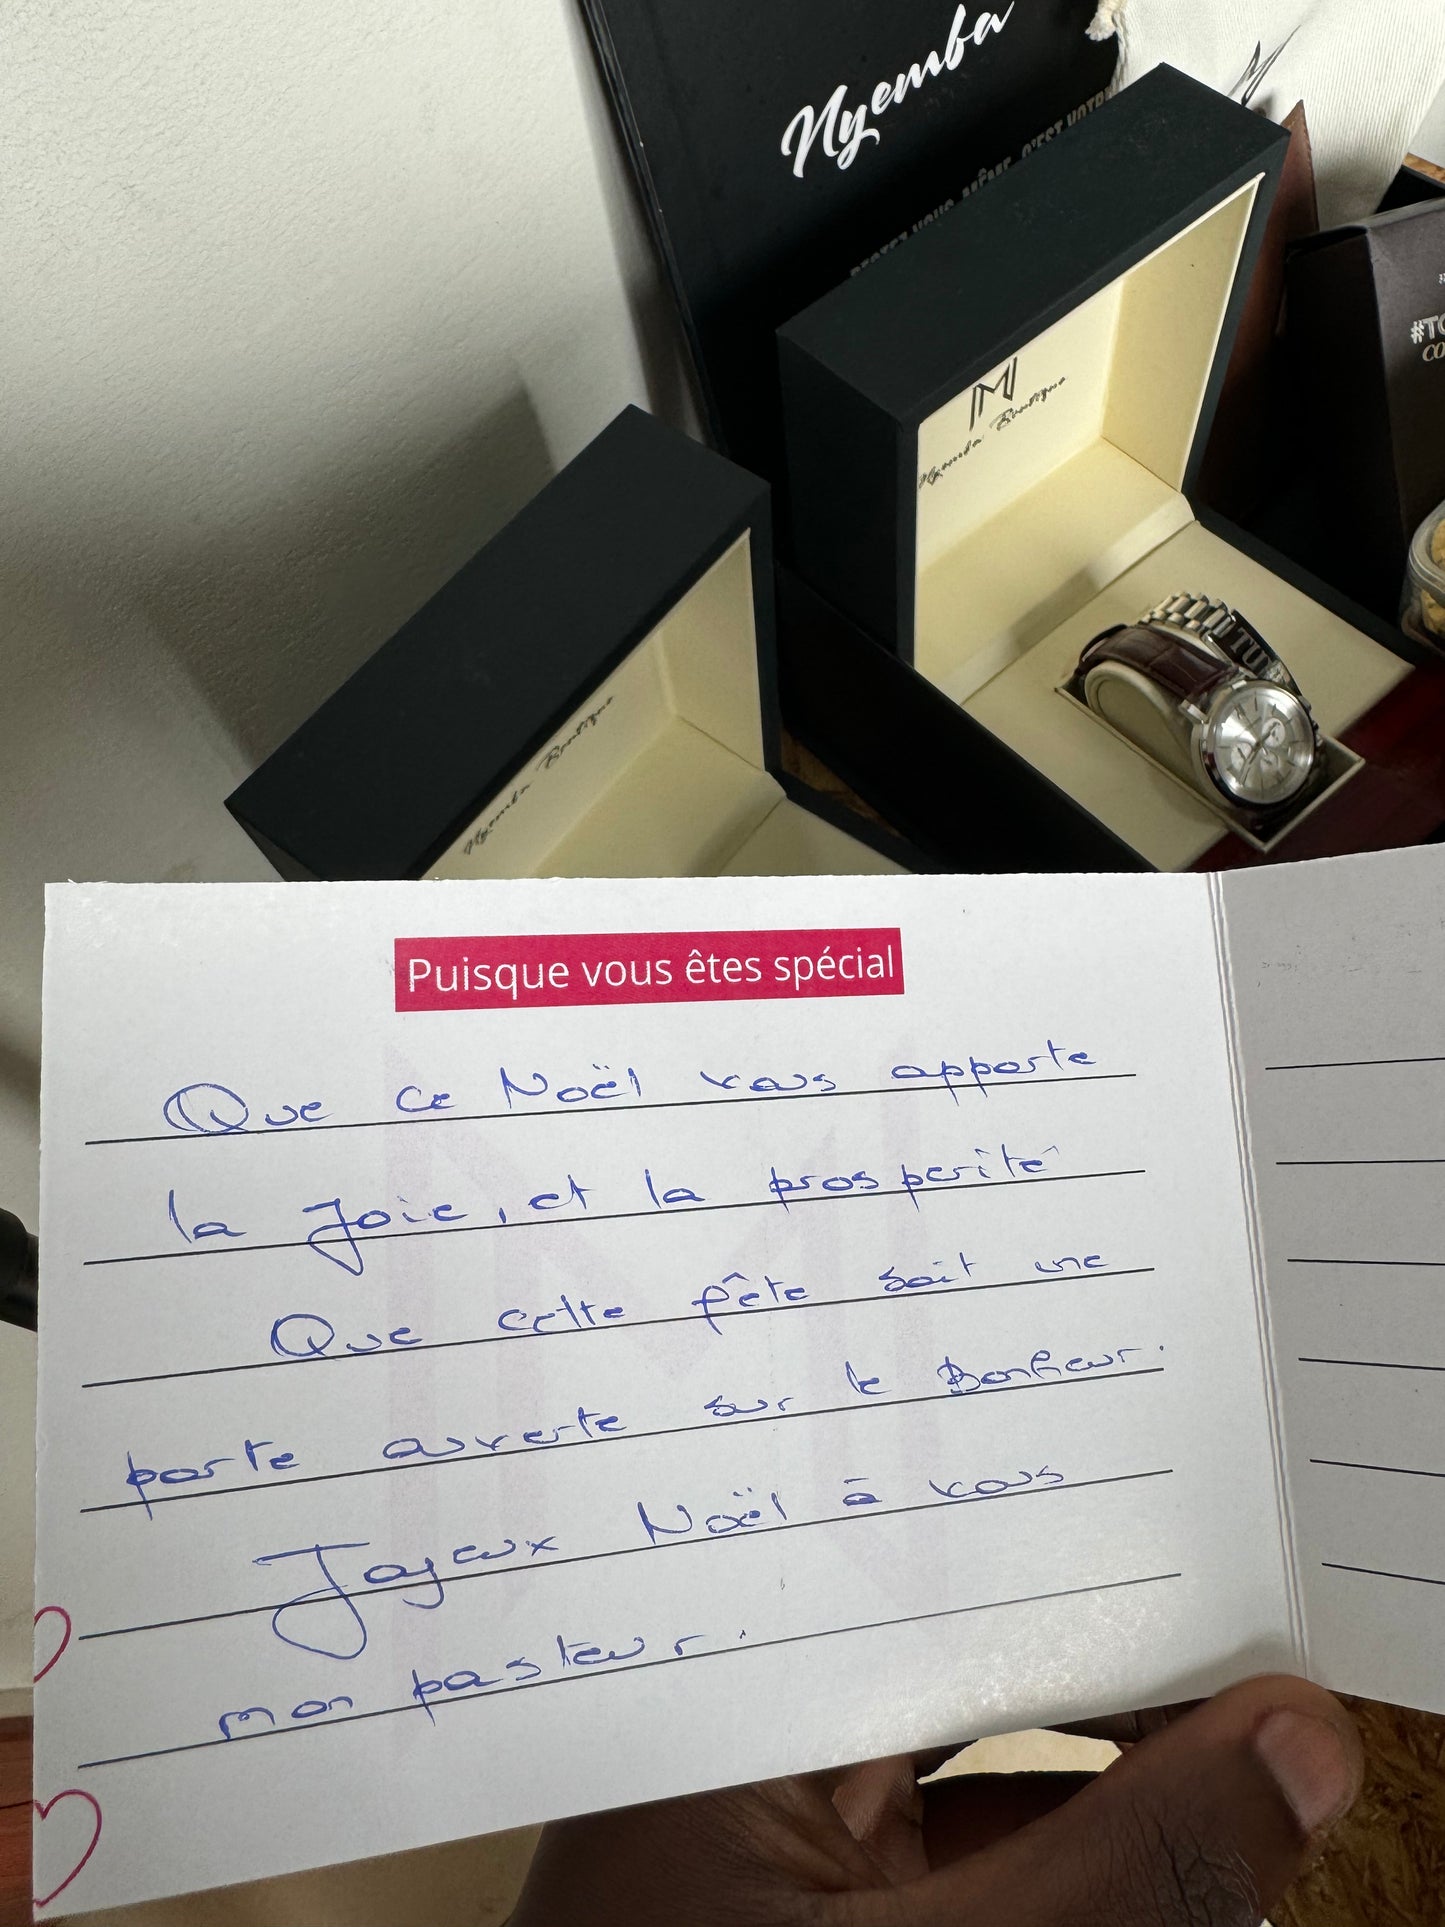 Nyemba
RESTEZ VOUS-MÊME, C'EST VOTRE
M
Nyemba Boutique
#TO
CO
Nyemba Boutique
Puisque vous êtes spécial
Que ce Noël vous apporte
la Joie, et la prosperité
Que cette fête soit une
porte ouverte sur le Bonheur.
Joyeux Noël à vous
mon pasteur.